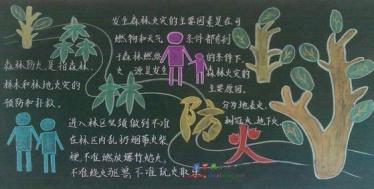 发生森林火灾的主要因素是在可
燃物和天气条件都有利
于森林燃烧的条件下,
火源是发生森林火灾的
主要原因。
分为地表火、
树冠火、地下火
森林防火是指森林、
林木和林地火灾的
预防和扑救。
防火
进入林区必须做到不准
在林区内乱扔烟蒂火柴
梗,不准燃放爆竹焰火,
不准烧火驱兽,不准玩火取乐